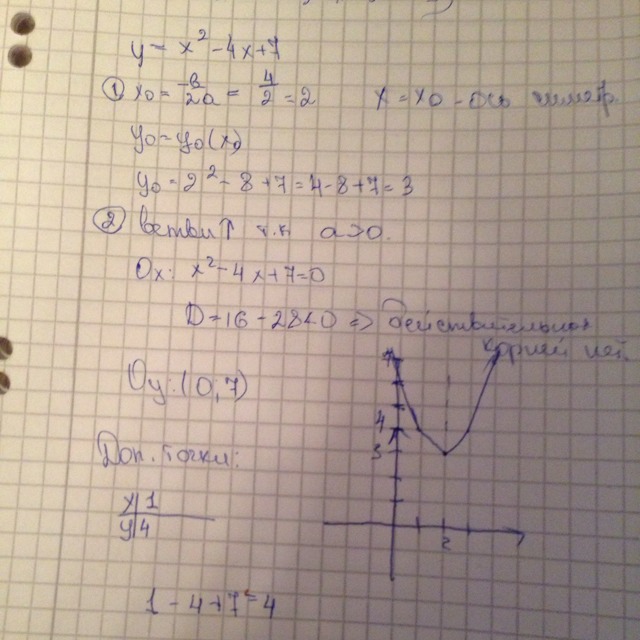 y = x² - 4x + 7
① x₀ = -в/2a = 4/2 = 2 x = x₀ - ось симетр.
y₀ = y₀(x₀)
y₀ = 2² - 8 + 7 = 4 - 8 + 7 = 3
② ветви ↑ т.к a > 0.
Ox: x² - 4x + 7 = 0
D = 16 - 28 < 0 => действительных
корней нет.
Oy: (0; 7)
7
4
3
2
Доп. точки:
x | 1
y | 4
1 - 4 + 7 = 4